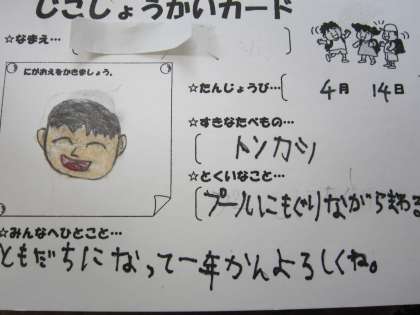 じこしょうかいカード
☆なまえ…
にがおえをかきましょう。
☆たんじょうび… 4月 14日
☆すきなたべもの…
トンカツ
☆とくいなこと…
プールにもぐりながら
☆みんなへひとこと…
ともだちになって一年かんよろしくね。